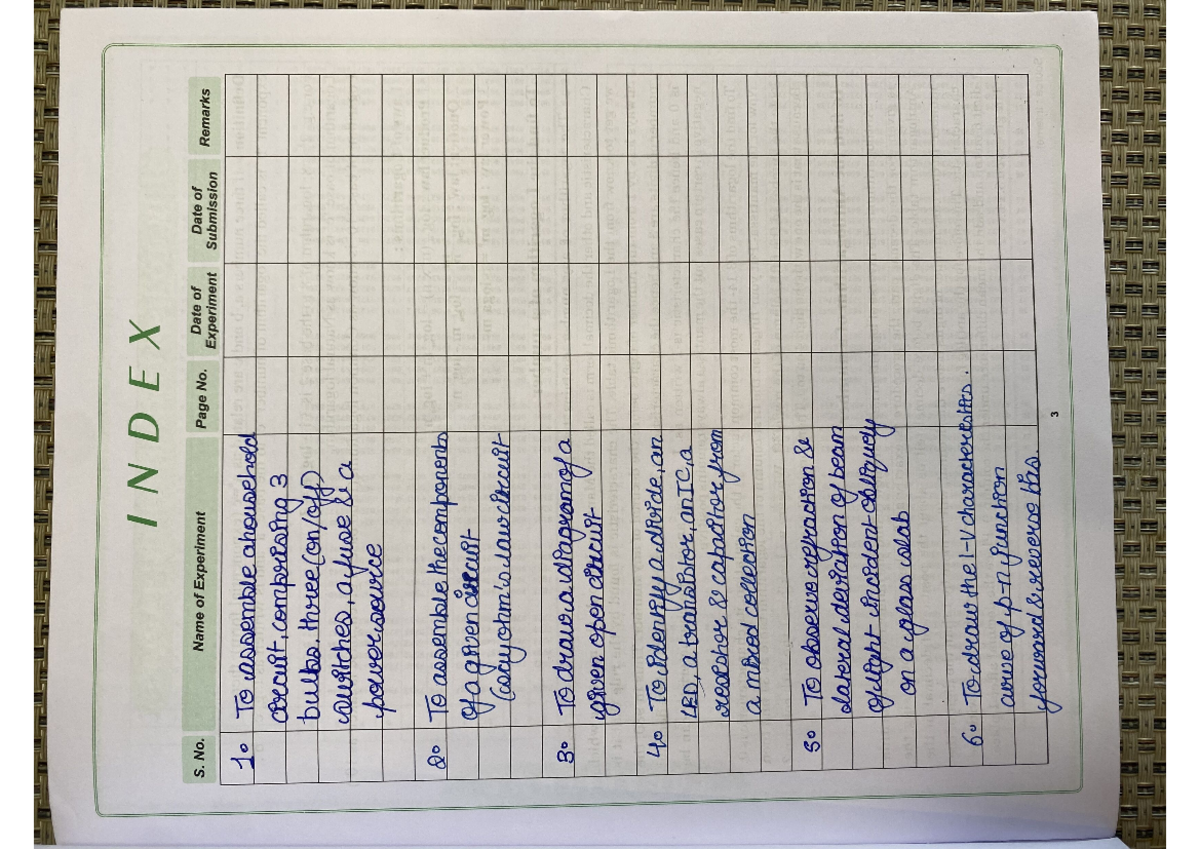 INDEX
S. No. Name of Experiment Page No. Date of Experiment Date of Submission Remarks
1. To assemble a household
circuit, comprising 3
bulbs three (on/off)
switches, a fuse & a
power source
2. To assemble the components
of a given circuit
(say ohm's law circuit
3. To draw a diagram of a
given open circuit
4. To identify a diode, an
LED, a transistor, an IC, a
resistor & capacitor from
a mixed collection
5. To observe refraction &
lateral deviation of beam
of light incident obliquely
on a glass slab
6. To draw the I-V characteristics.
curve of p-n junction
forward & reverse this.
3